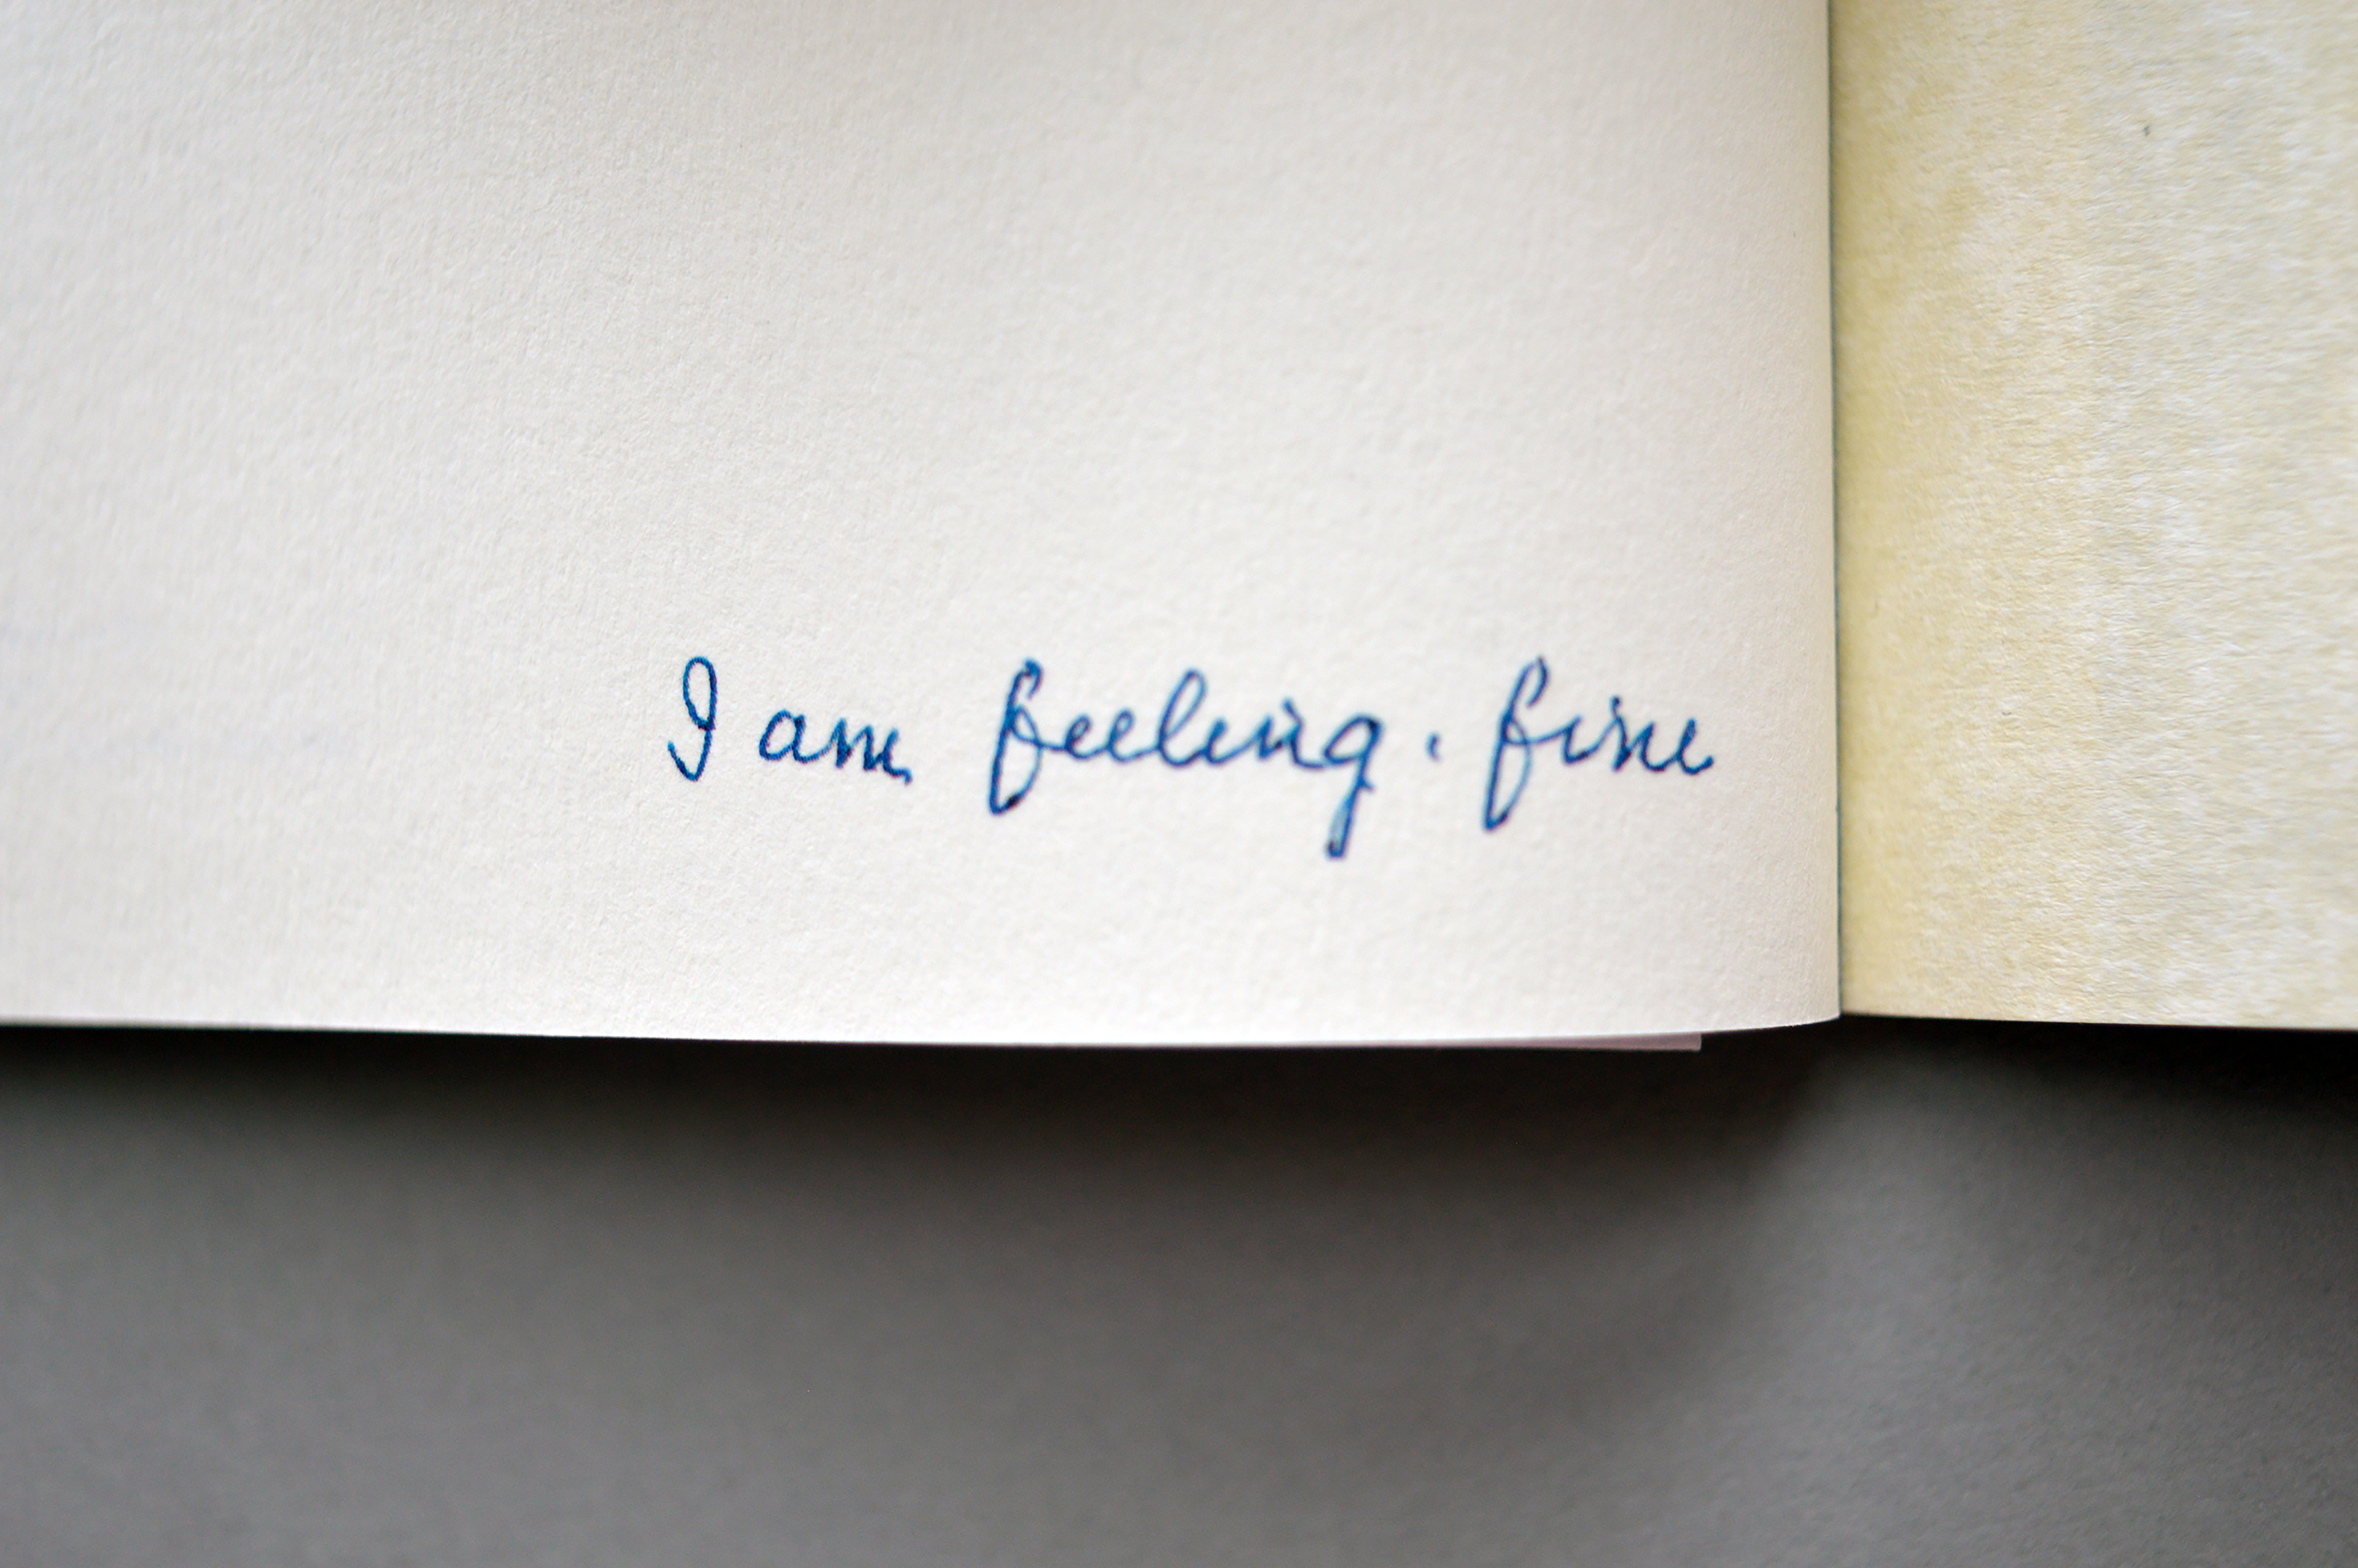 I am feeling. fine